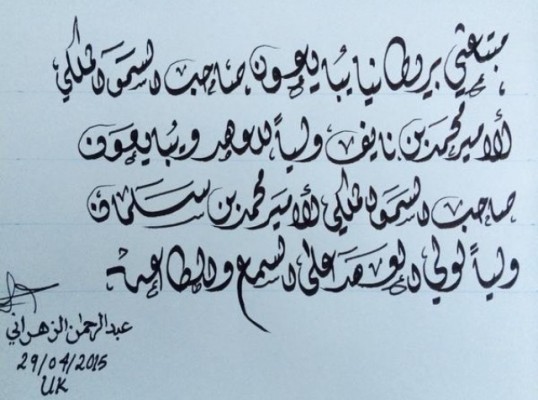 مبتعثي بريطانيا يبايعون صاحب السمو الملكي
الأمير محمد بن نايف ولياً للعهد ويبايعون
صاحب السمو الملكي الأمير محمد بن سلمان
ولياً لولي العهد على السمع والطاعة
عبدالرحمن الزهراني
29/04/2015
UK